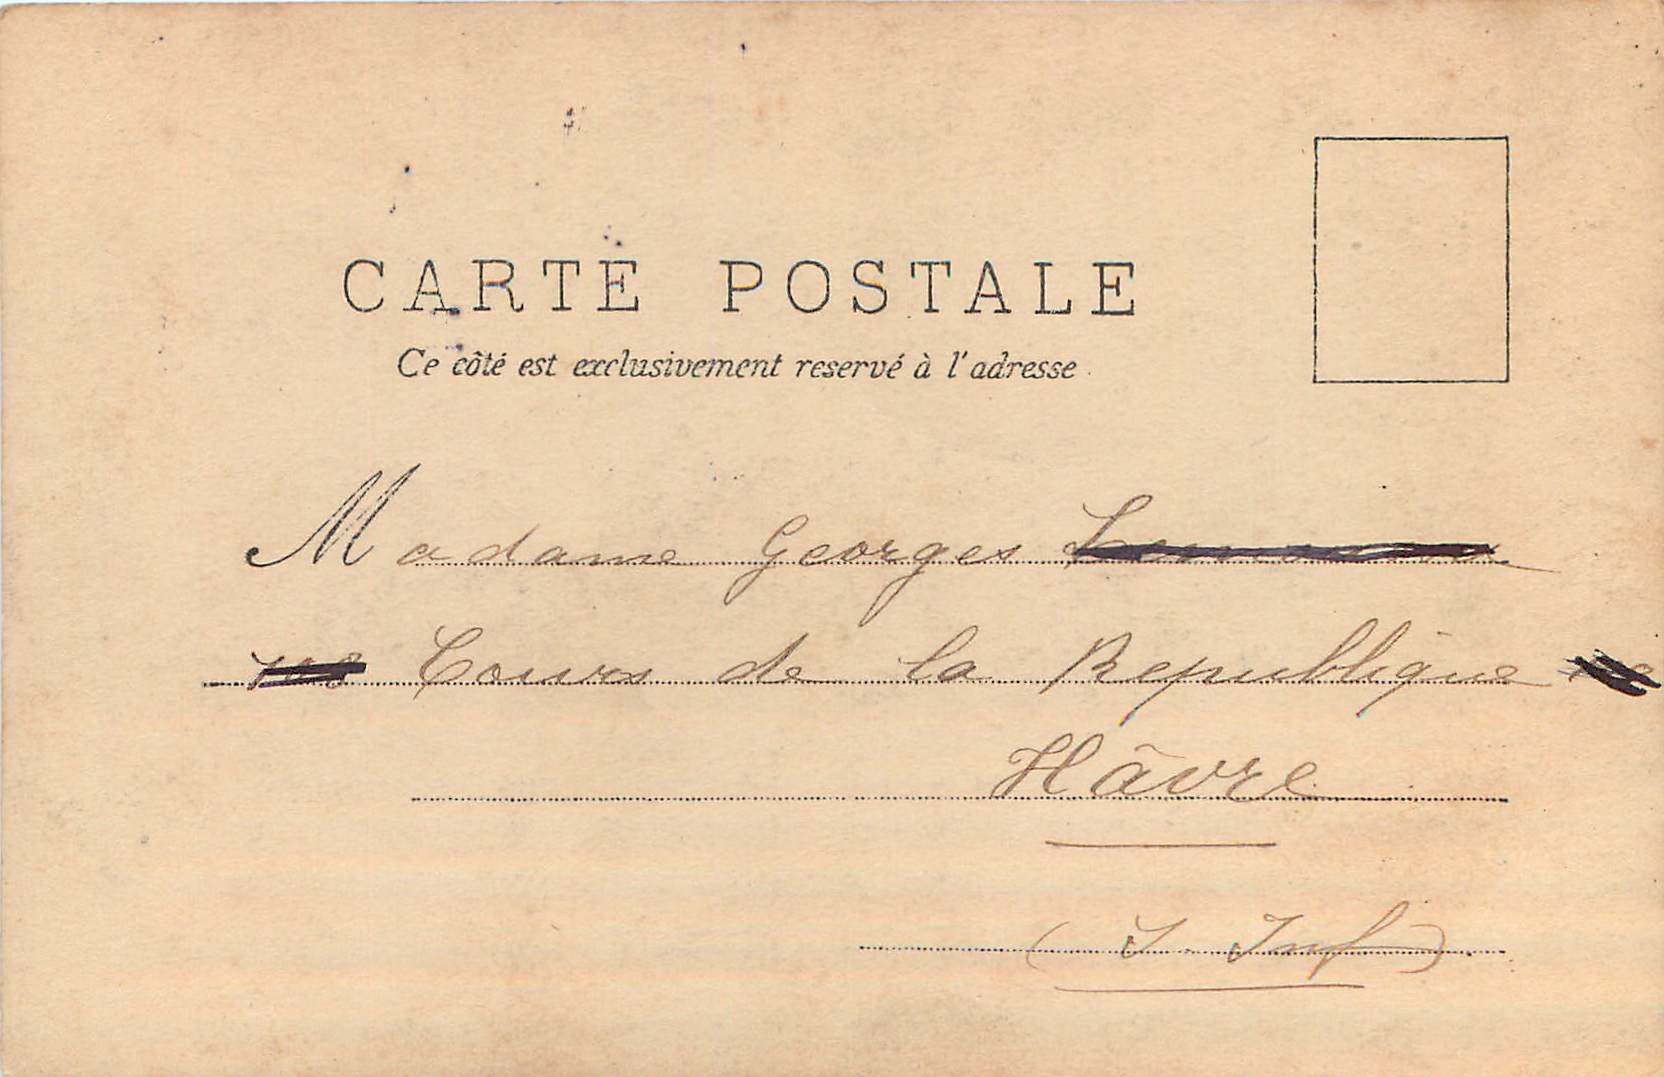 CARTE POSTALE
Ce côté est exclusivement reservé à l'adresse
Madame Georges
Cours de la Republique
Hâvre
(S. Inf)